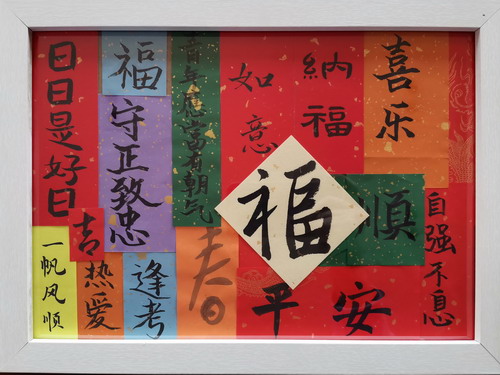 日日是好日
福
守正致忠
青年应富有朝气
如意
纳福
喜乐
福
顺
自强不息
吉
一帆风顺
热爱
逢考
春
平安